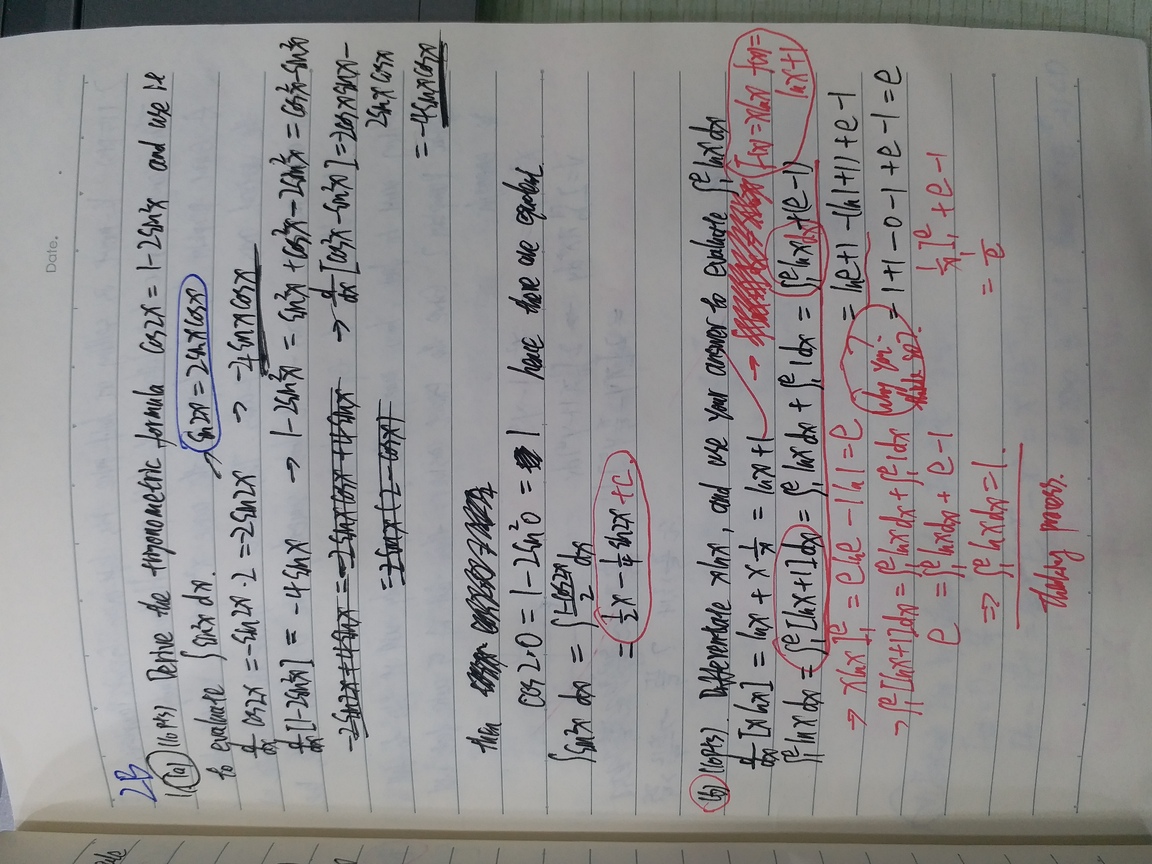 Date.
2B
1. (1a) (10pts) Derive the trigonometric formula cos2x = 1-2sin²x and use it
to evaluate ∫sin²x dx. → sin2x = 2sinxcosx
d/dx cos2x = -sin2x · 2 = -2sin2x → -4sinxcosx
d/dx [1-2sin²x] = -4sinx → 1-2sin²x = sin²x + cos²x - 2sin²x = cos²x - sin²x
-2sin2x + 4sinx = -2sinxcosx + 4sinx → d/dx [cos²x - sin²x] = -2cosxsinx -
= 2sinx(2-cosx) 2sinxcosx
= -4sinxcosx
then
cos2·0 = 1-2sin²0 = 1 hence there are equivalent.
∫sin²x dx = ∫ (1-cos2x)/2 dx
= ½x - ¼ sin2x + C
(b) (10pts). Differentiate xlnx, and use your answer to evaluate ∫₁ᵉ lnx dx
d/dx [xlnx] = lnx + x 1/x = lnx + 1 → F(x) = xlnx f(x) =
lnx + 1
∫₁ᵉ lnx dx = ∫₁ᵉ [lnx+1] dx = ∫₁ᵉ lnx dx + ∫₁ᵉ 1 dx = ∫₁ᵉ lnx dx + (e-1)
→ xlnx]₁ᵉ = elne - 1ln1 = e ? = lne+1 - (ln1+1) + e - 1
→ ∫₁ᵉ [lnx+1] dx = ∫₁ᵉ lnx dx + ∫₁ᵉ 1 dx Why you think so? = 1+1-0-1+e-1 = e
e = ∫₁ᵉ lnx dx + e-1 1/x]₁ᵉ + e-1
⇒ ∫₁ᵉ lnx dx = 1. = 1/e
thinking process.